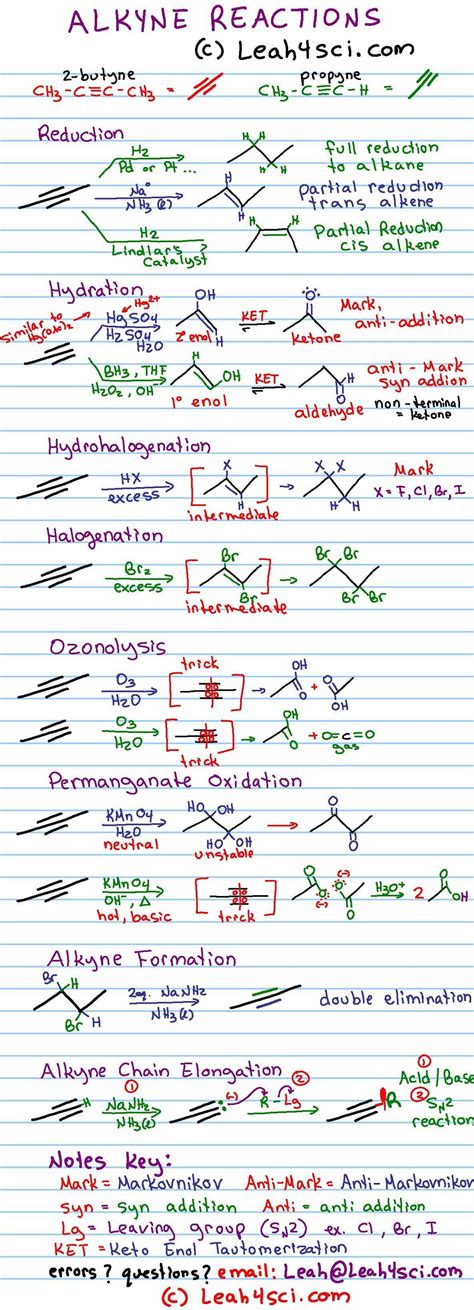 ALKYNE REACTIONS
(c) Leah4sci.com
2-butyne propyne
CH₃-C≡C-CH₃ = CH₃-C≡C-H =
Reduction
H₂
Pd or Pt...
H H
H H
full reduction
to alkane
Na°
NH₃(l)
H
H
partial reduction
trans alkene
H₂
Lindlar's
Catalyst
H H
Partial Reduction
cis alkene
Hydration
Hg²⁺
HgSO₄
H₂SO₄
H₂O
OH
H
2° enol
KET
O
ketone
Mark,
anti-addition
BH₃, THF
H₂O₂, OH⁻
H
OH
1° enol
KET
O
H
aldehyde
anti - Mark
syn addion
non-terminal
= ketone
Hydrohalogenation
HX
excess
X
H
intermediate
X X
H H
Mark
X = F, Cl, Br, I
Halogenation
Br₂
excess
Br
Br
intermediate
Br Br
Br Br
Ozonolysis
trick
O₃
H₂O
OH
O
+
O
OH
O₃
H₂O
trick
OH
O
+ O=C=O
gas
Permanganate Oxidation
KMnO₄
H₂O
neutral
HO OH
HO OH
unstable
O
O
KMnO₄
OH⁻, Δ
hot, basic
trick
O O (-)
(-) O
H₃O⁺
2
O
OH
Alkyne Formation
Br H
Br H
2eq. NaNH₂
NH₃(l)
double elimination
Alkyne Chain Elongation
H
①
NaNH₂
NH₃(l)
(-)
②
R-Lg
R
① Acid/Base
② SN2
reaction
Notes Key:
Mark = Markovnikov Anti-Mark = Anti-Markovnikov
syn = syn addition Anti = anti addition
Lg = Leaving group (SN2) ex. Cl, Br, I
KET = Keto Enol Tautomerization
errors? questions? email: Leah@Leah4sci.com
(c) Leah4sci.com